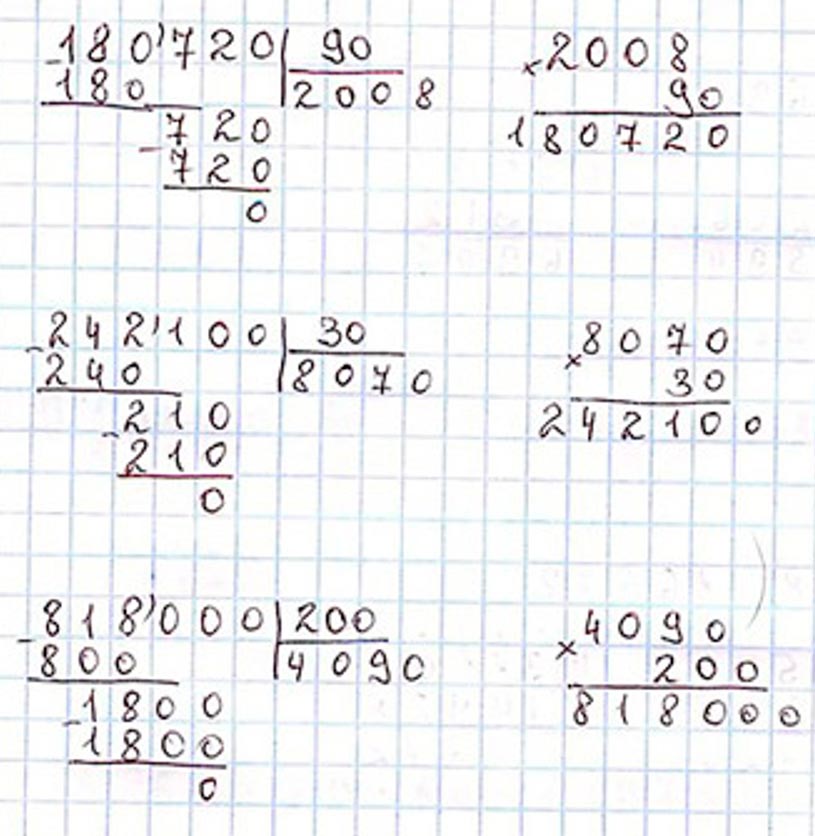 180'720 | 90
2008
- 180
720
- 720
0
× 2008
90
180720
242'100 | 30
8070
- 240
210
- 210
0
× 8070
30
242100
818'000 | 200
4090
- 800
1800
- 1800
0
× 4090
200
818000